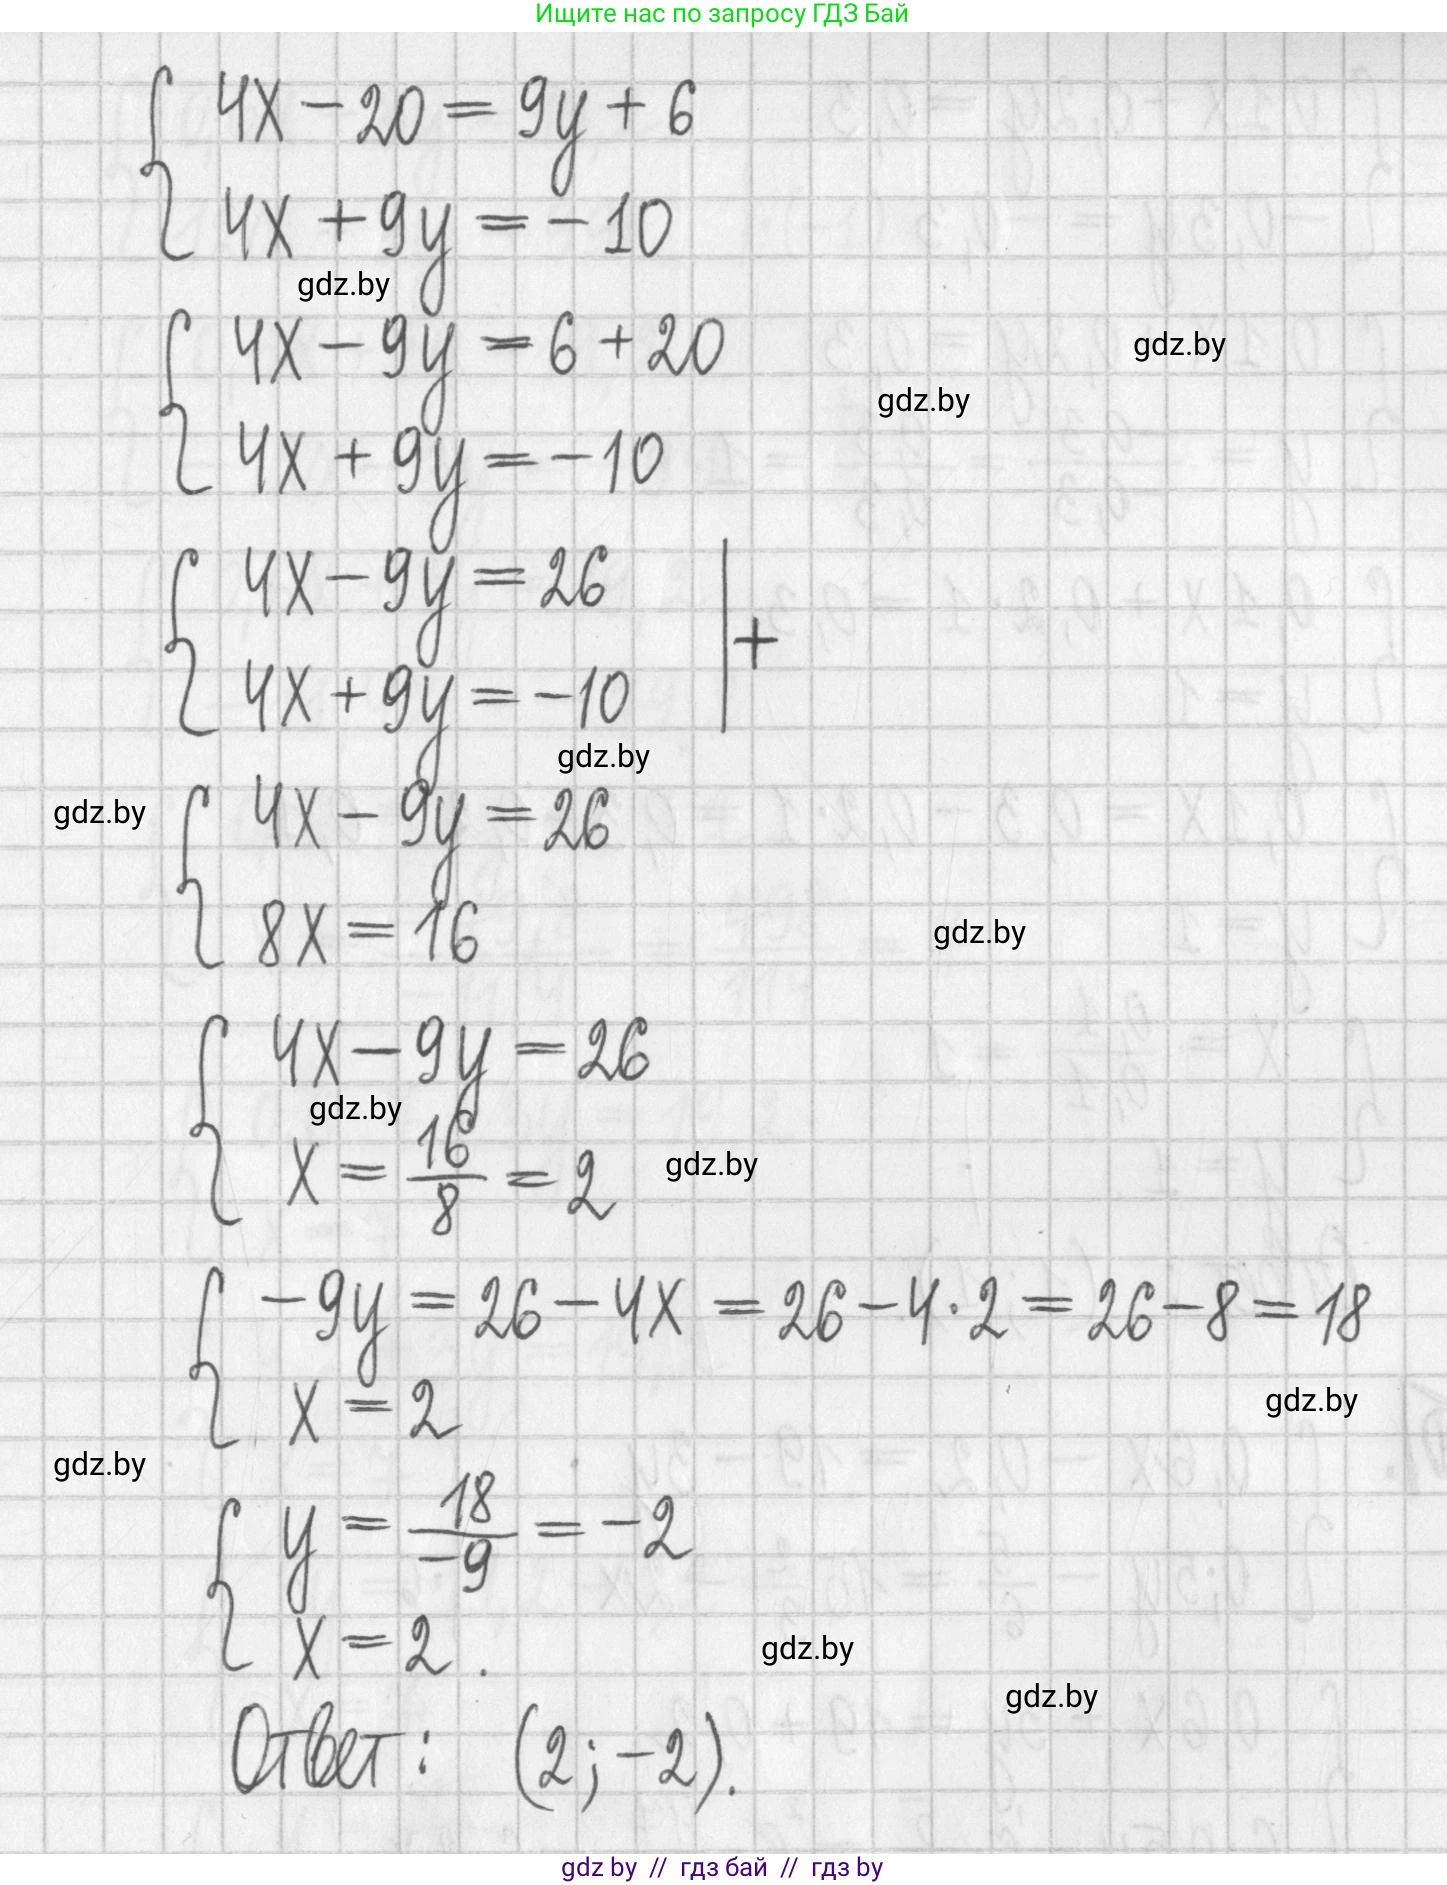 Ищите нас по запросу ГДЗ Бай
4x - 20 = 9y + 6
4x + 9y = -10
gdz.by
4x - 9y = 6 + 20
gdz.by
gdz.by
4x + 9y = -10
4x - 9y = 26
+
4x + 9y = -10
gdz.by
gdz.by
4x - 9y = 26
8x = 16
gdz.by
4x - 9y = 26
gdz.by
x = 16/8 = 2
gdz.by
-9y = 26 - 4x = 26 - 4 · 2 = 26 - 8 = 18
x = 2
gdz.by
gdz.by
y = 18/-9 = -2
x = 2.
gdz.by
gdz.by
Ответ: (2; -2).
gdz by // гдз бай // гдз by